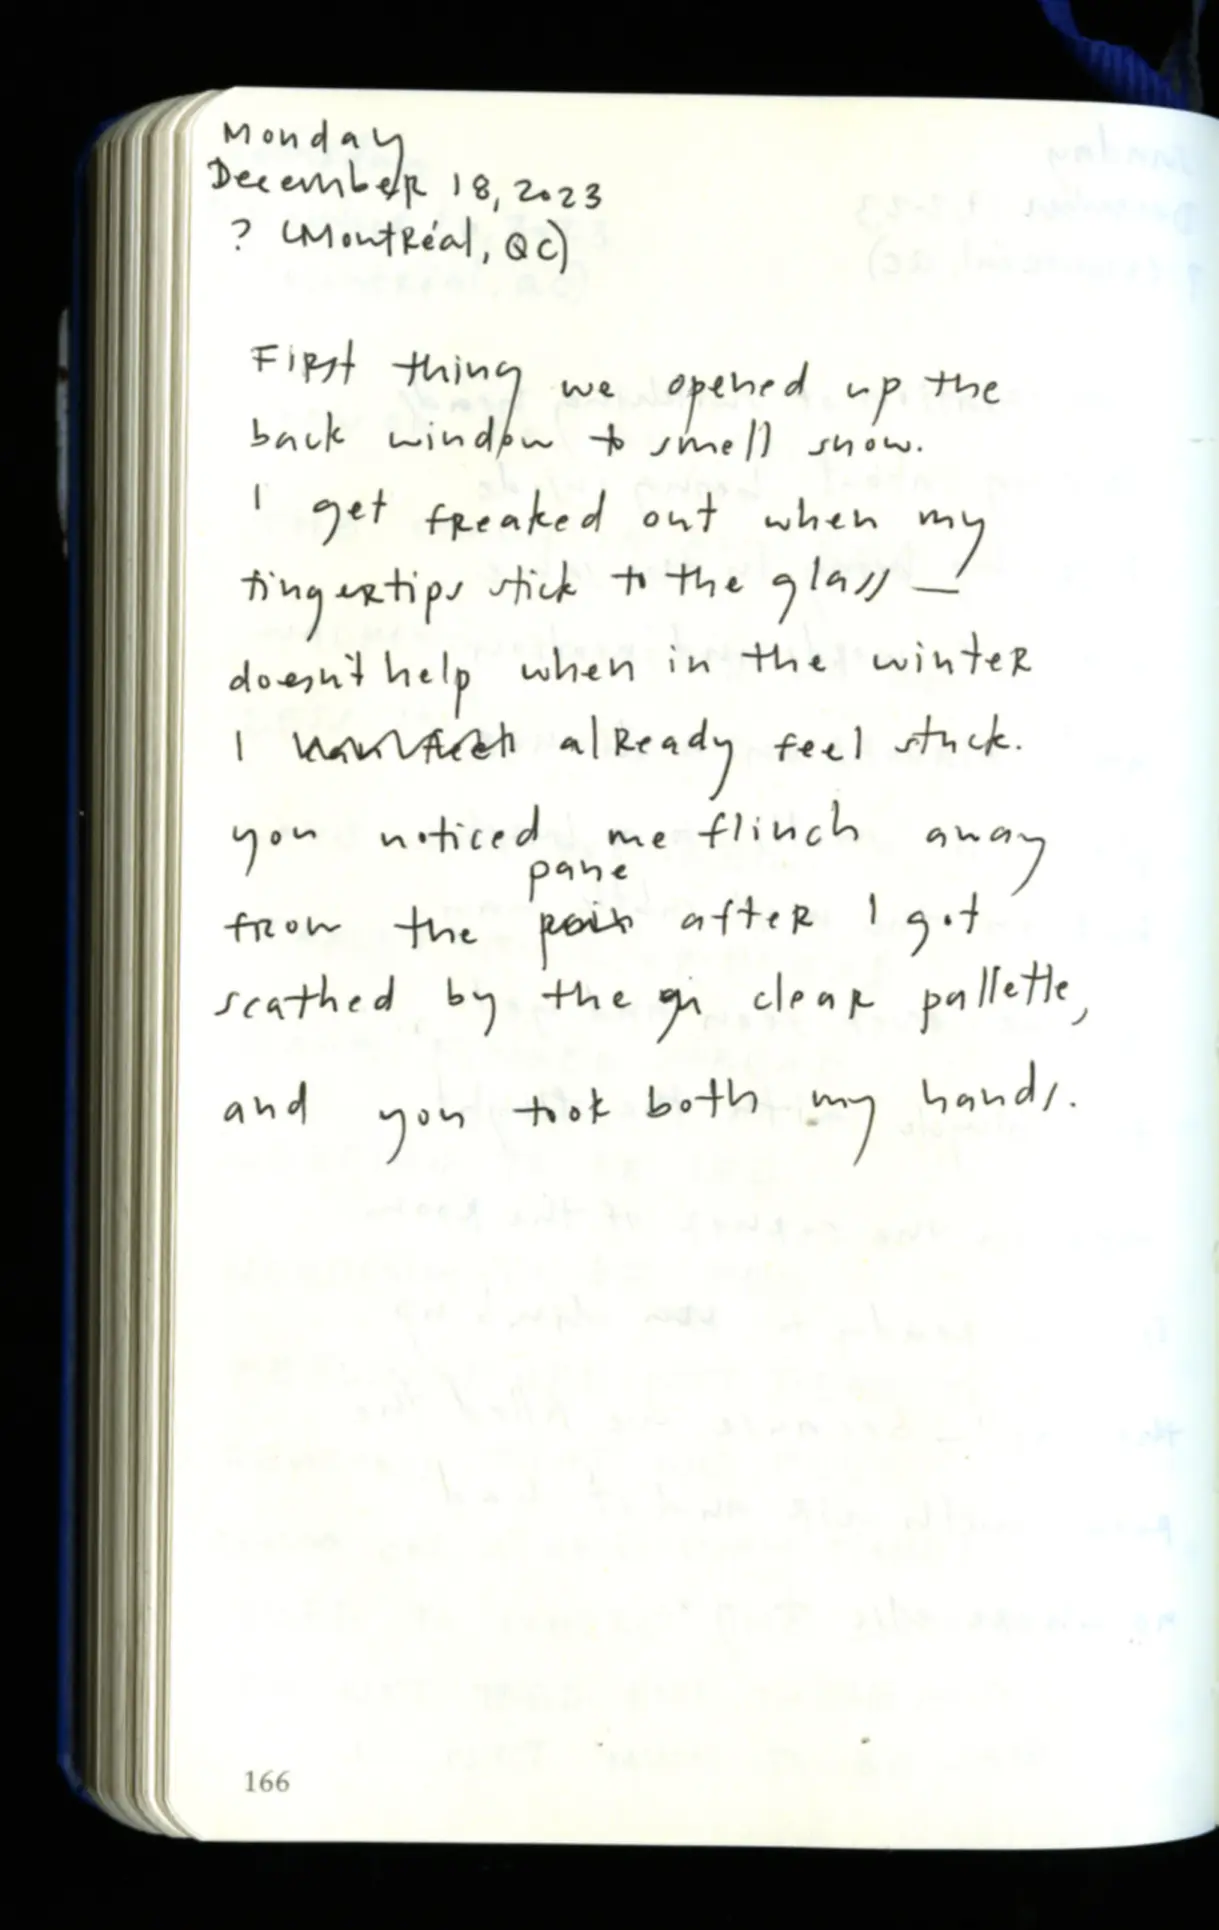 Monday
December 18, 2023
? (Montréal, QC)
First thing we opened up the
back window to smell snow.
I get freaked out when my
fingertips stick to the glass —
doesn't help when in the winter
I already feel stuck.
you noticed me flinch away
pane
from the pain after I got
scathed by the clear pallette,
and you took both my hands.
166